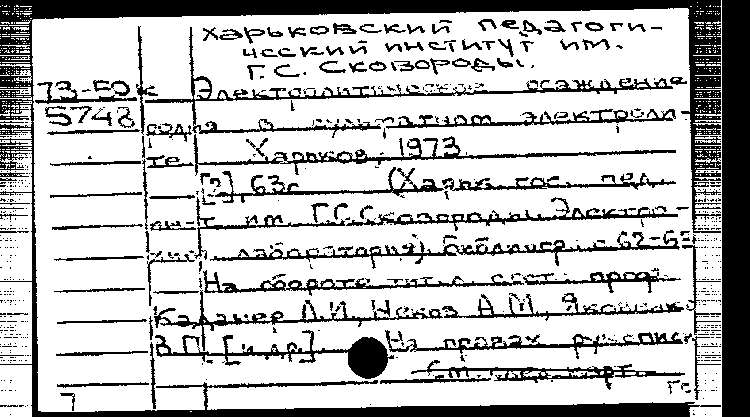 Харьковский педагоги-
ческий институт им.
Г.С. Сковороды.
73-50к Электролитическое осаждение
5748 родия в сульфатном электроли-
те Харьков, 1973
[2], 63с (Харьк. гос. пед.
ин-т им. Г.С. Сковороды. Электро-
хим. лаборатория). Библиогр.: с 62-63
На обороте тит. л. сост.: проф.
Каданер Л.И, А.М.,
В.П. [и др.] На правах рукописи
См. след. карт.
7